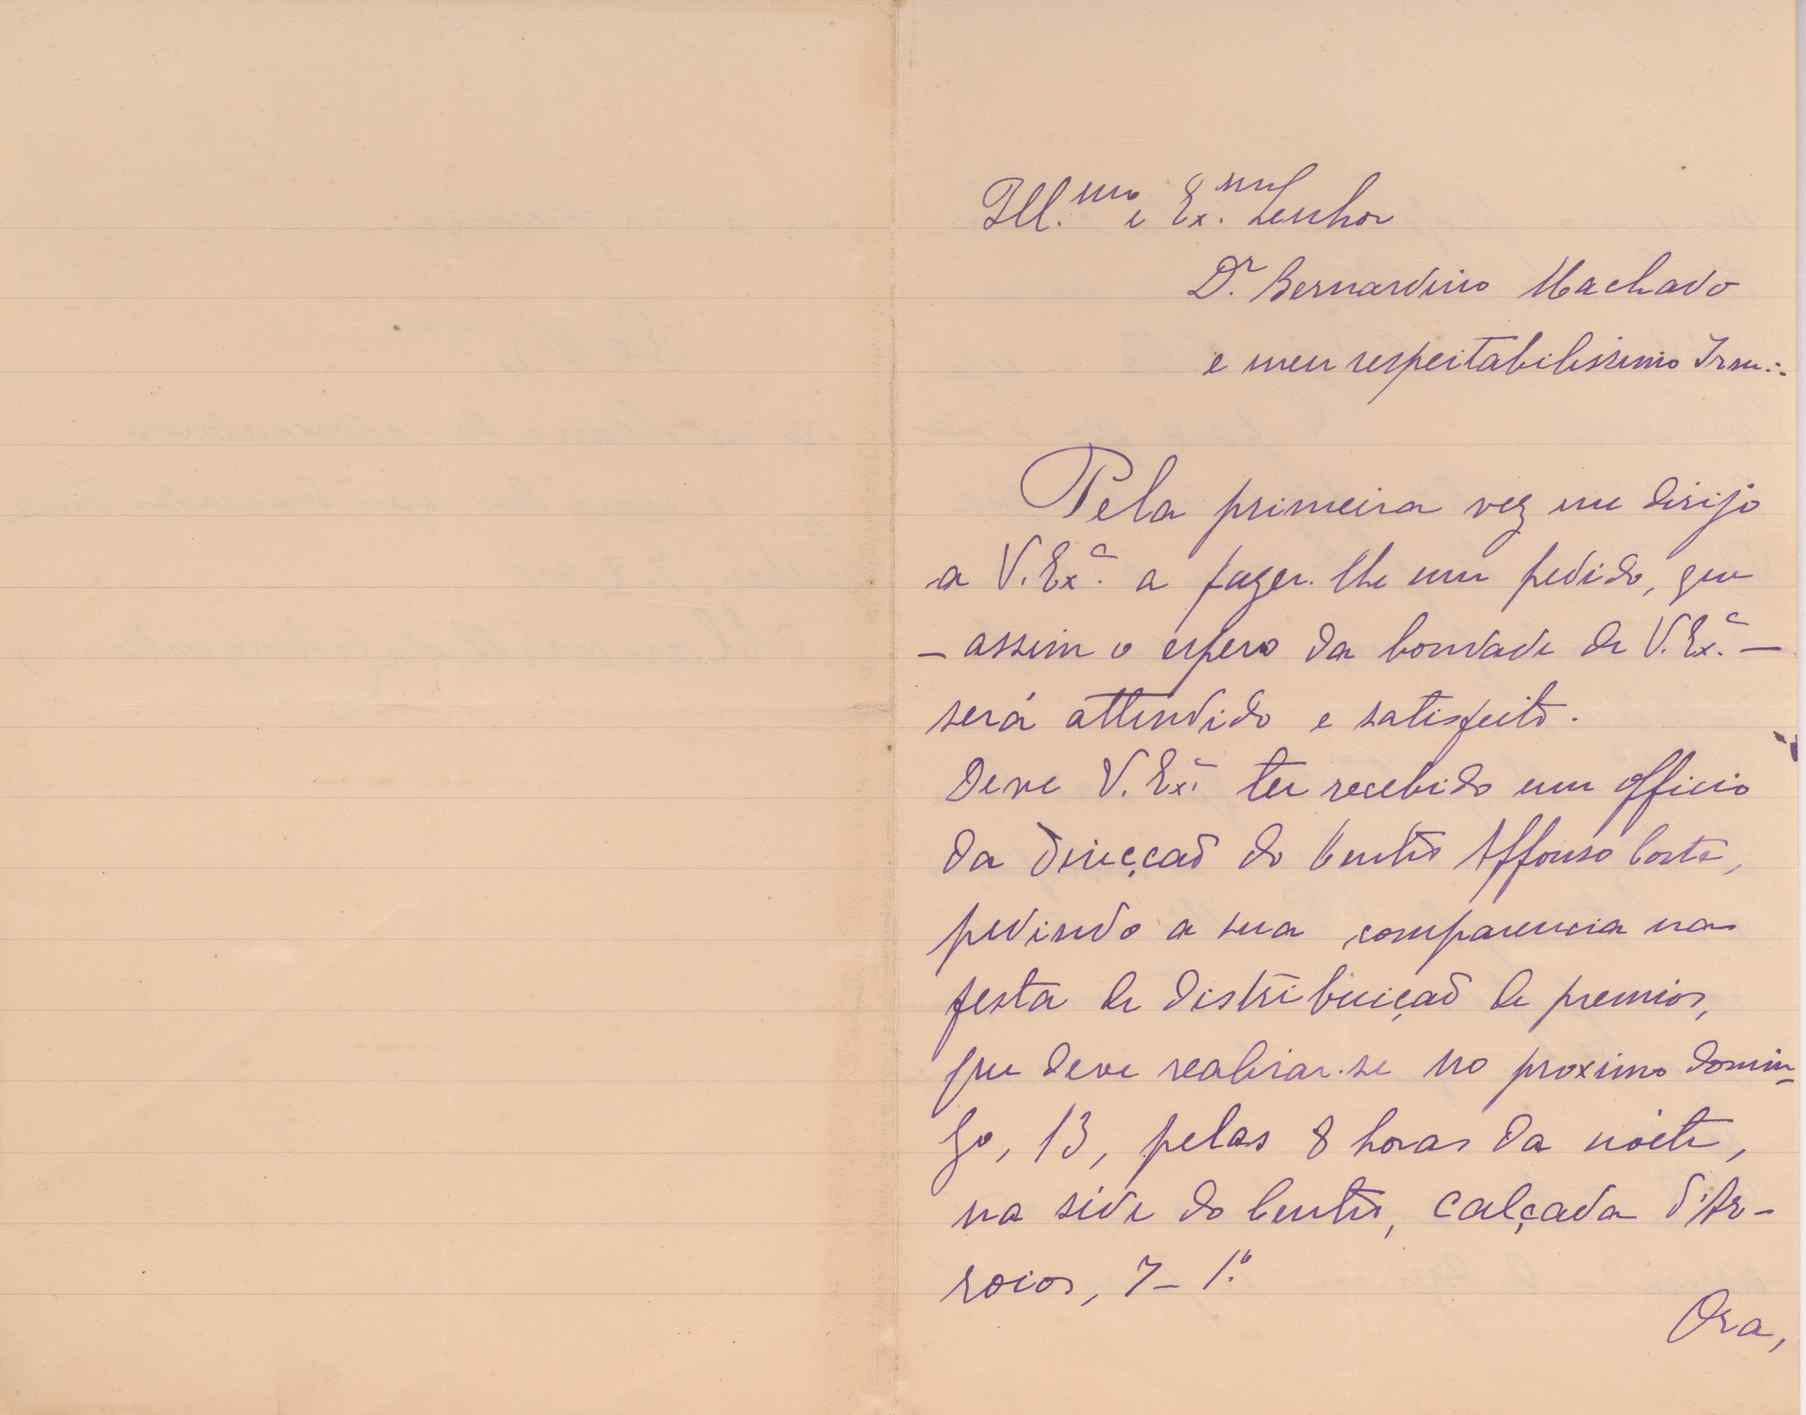 Ill.mo e Ex.mo Senhor
Dr. Bernardino Machado
e meu respeitabilissimo Irm∴
Pela primeira vez me dirijo
a V. Ex.ª a fazer-lhe um pedido, que
— assim o espero da bondade de V. Ex.ª —
será attendido e satisfeito.
Deve V. Ex.ª ter recebido um officio
da Direcção do Centro Affonso Costa,
pedindo a sua comparencia na
festa de distribuição de premios,
que deve realisar-se no proximo domin-
go, 13, pelas 8 horas da noite,
na séde do Centro, calçada d'Ar-
roios, 7-1.º
Ora,